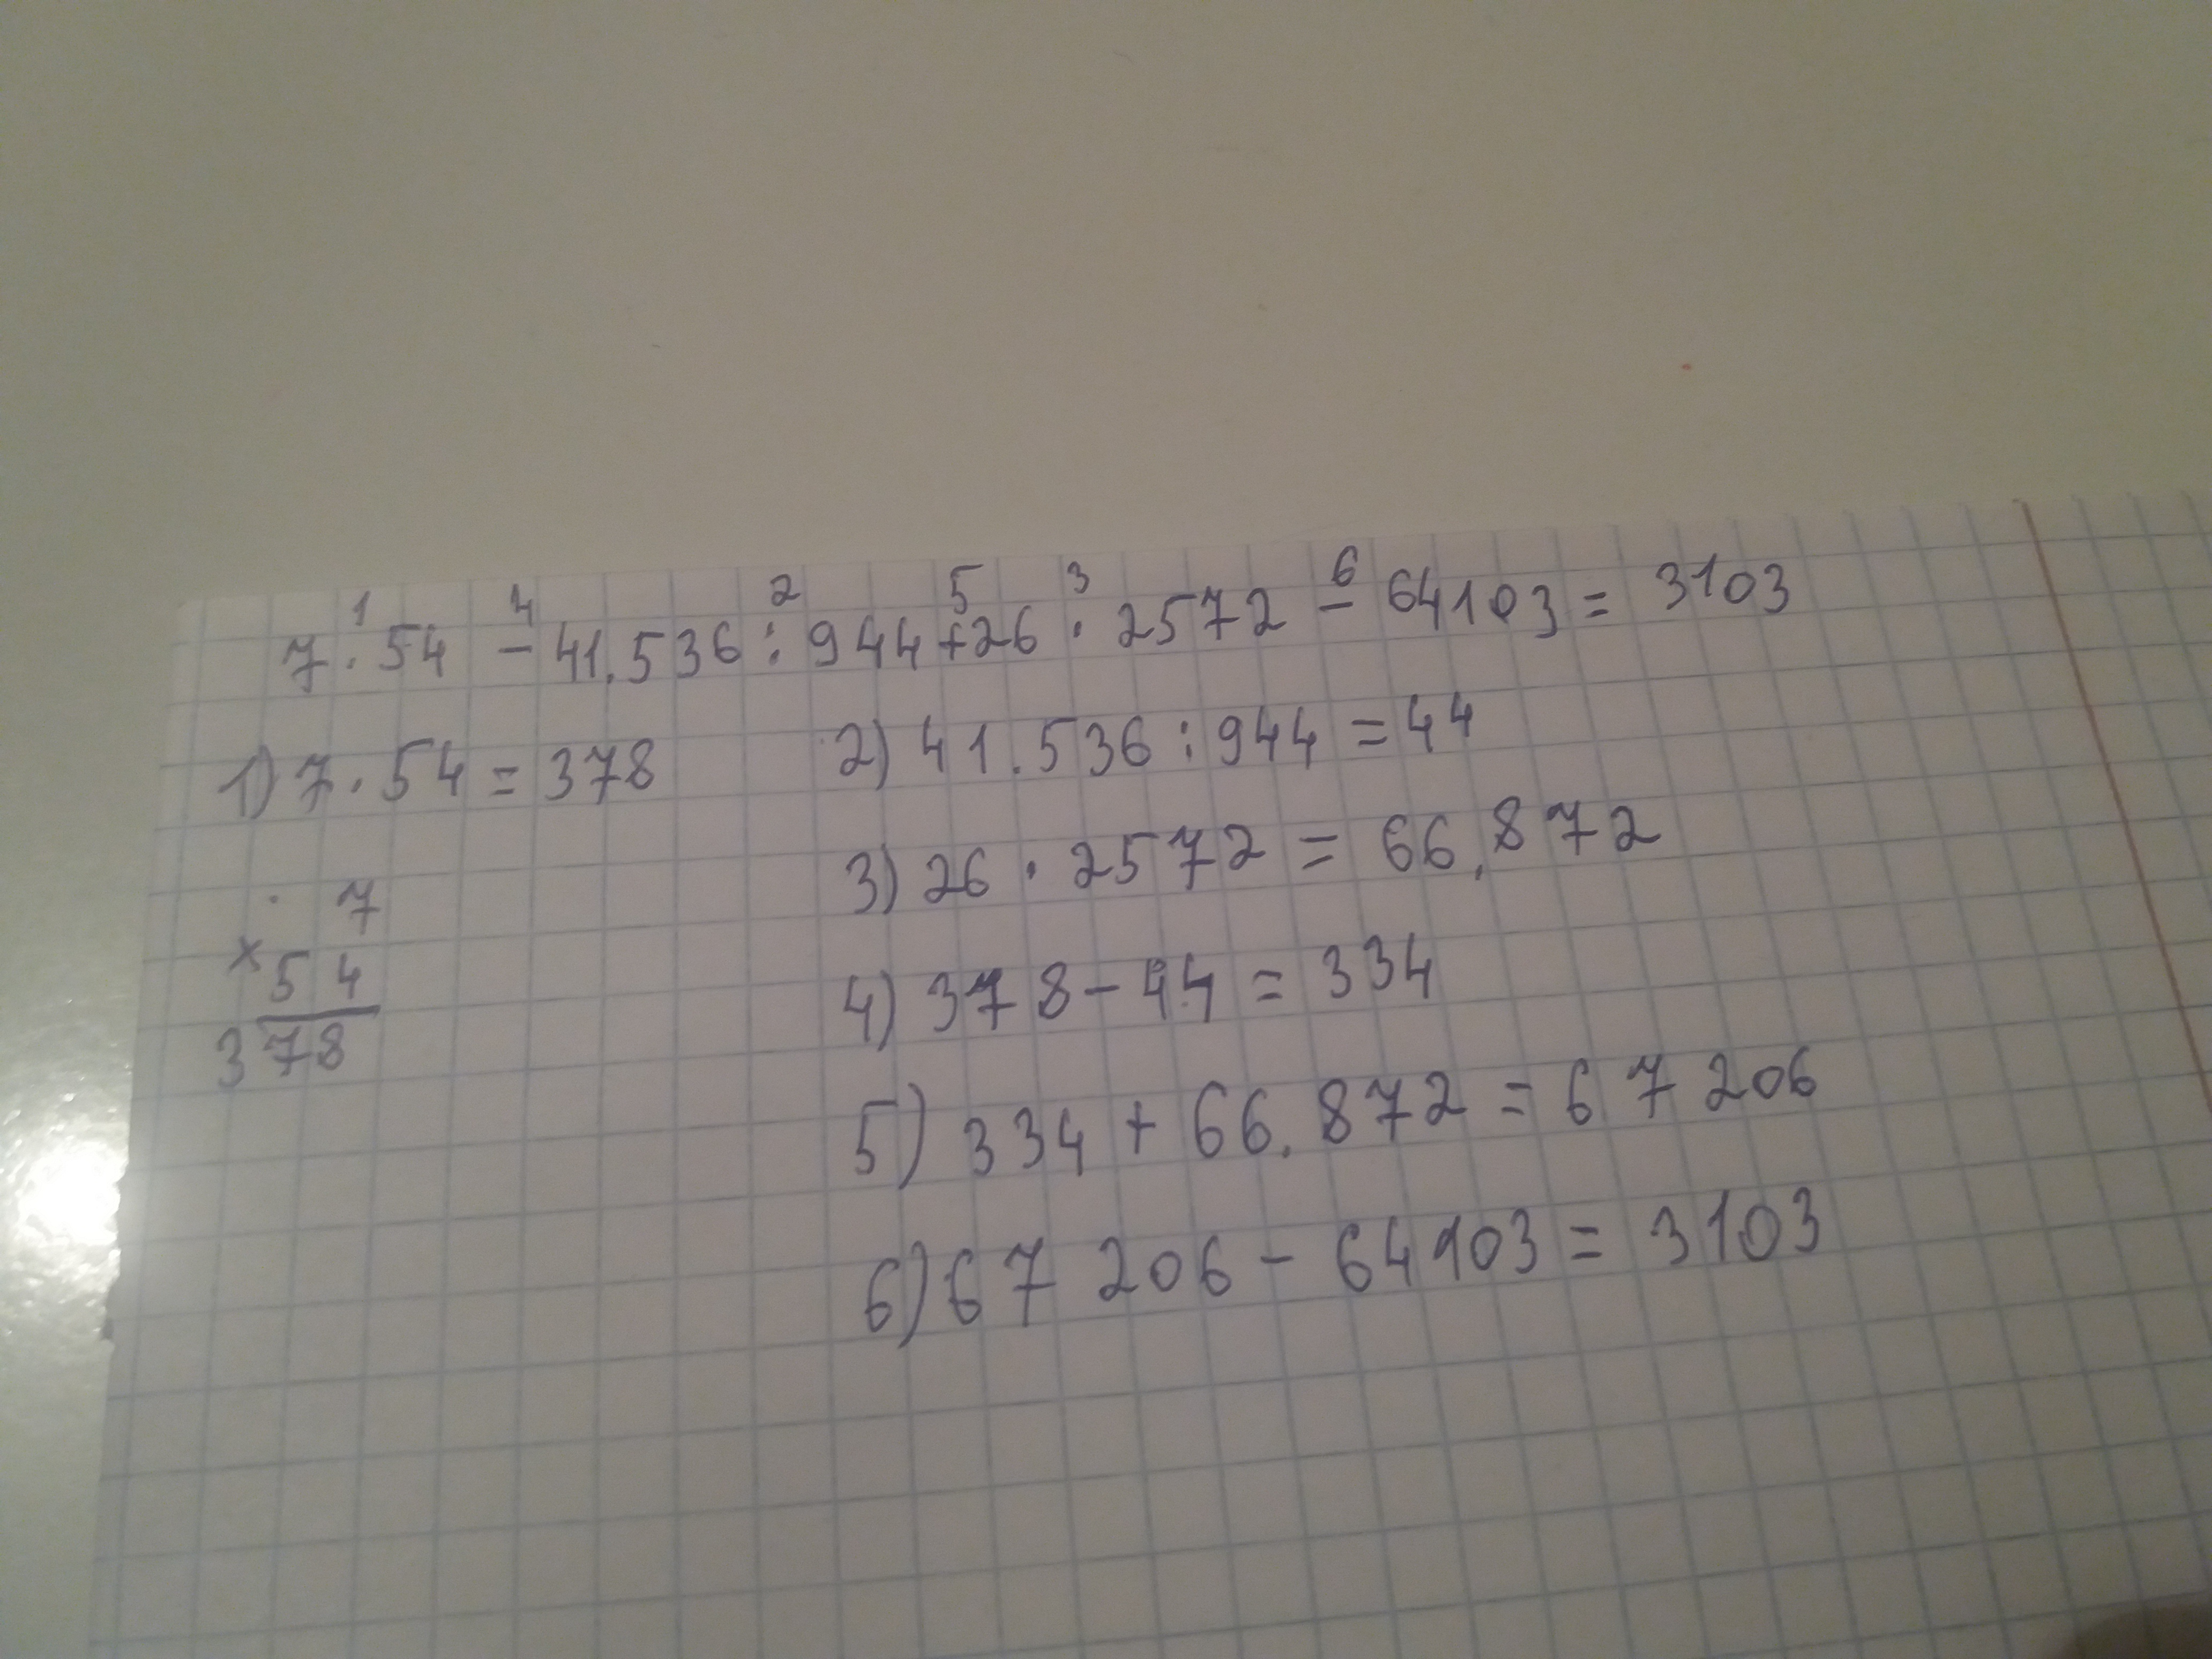 1 4 2 5 3 6
7 · 54 - 41.536 : 944 + 26 · 2572 - 64103 = 3103
1) 7 · 54 = 378
7
× 54
378
2) 41.536 : 944 = 44
3) 26 · 2572 = 66.872
4) 378 - 44 = 334
5) 334 + 66.872 = 67 206
6) 67 206 - 64103 = 3103